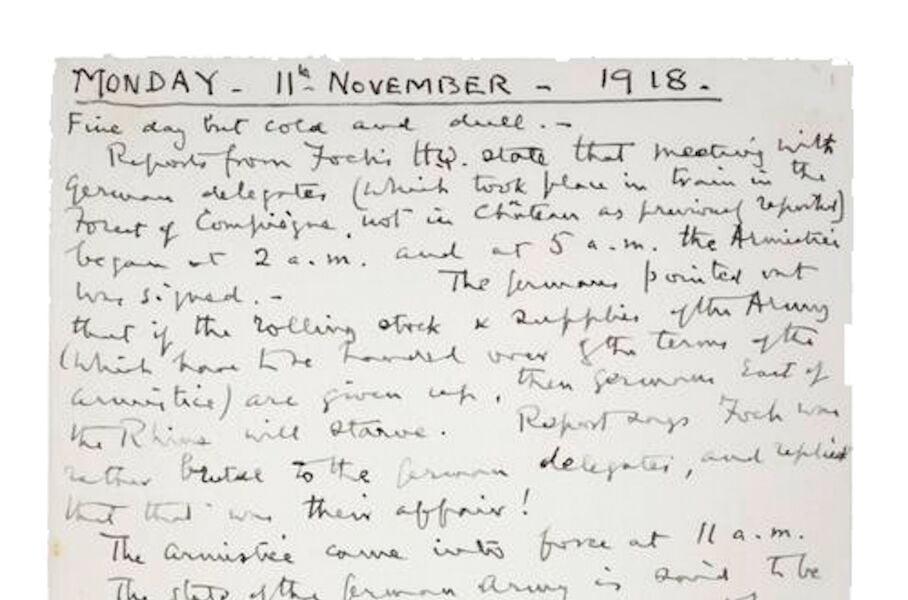 MONDAY - 11th NOVEMBER - 1918.
Fine day but cold and dull. -
Reports from Foch's H.Q. state that meeting with
German delegates (which took place in train in the
Forest of Compiègne, not in Château as previously reported)
began at 2 a.m. and at 5 a.m. the Armistice
was signed. - The Germans pointed out
that if the rolling stock & supplies of the Army
(which have to be handed over by the terms of the
armistice) are given up, then Germans East of
the Rhine will starve. Report says Foch was
rather brutal to the German delegates, and replied
that that was their affair!
The armistice came into force at 11 a.m.
The state of the German Army is said to be